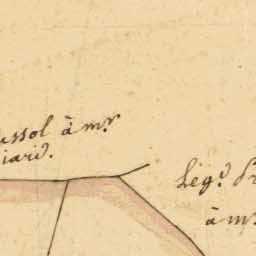 ussol à mr
iard.
Leg.d
à mr